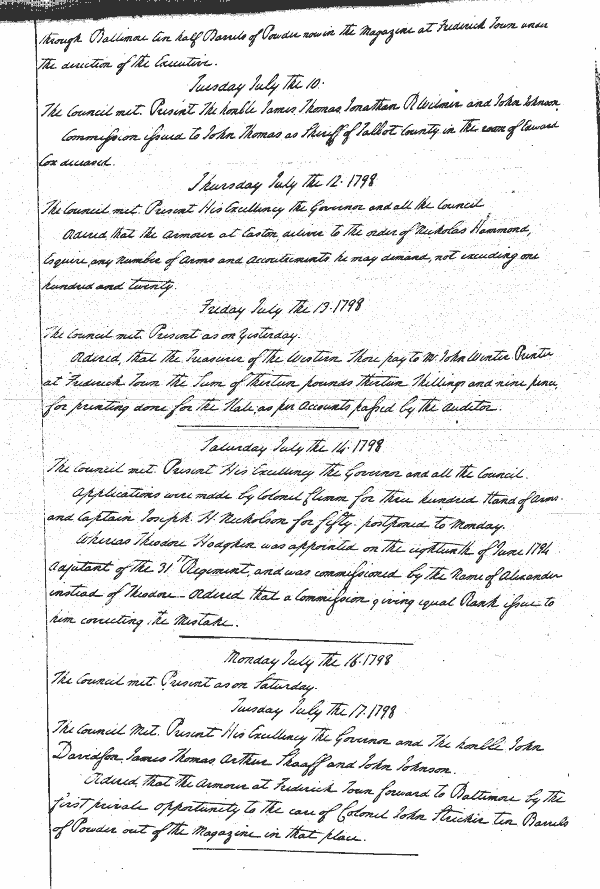 through Baltimore ten half Barrels of Powder now in the Magazine at Frederick Town under
the direction of the Executive.
Tuesday July the 10.
The Council met. Present The honble James Thomas, Jonathan R Wilmer and John Johnson
Commission issued to John Thomas as Sheriff of Talbot County in the room of Edward
Cox deceased.
Thursday July the 12. 1798
The Council met. Present His Excellency the Governor and all the Council
Ordered, that the Armourer at Easton, deliver to the order of Nicholas Hammond,
Esquire, any number of Arms and Accoutrements he may demand, not exceeding one
hundred and twenty.
Friday July the 13. 1798
The Council met. Present as on Yesterday.
Ordered, that the Treasurer of the Western Shore pay to Mr John Winter Printer
at Frederick Town the Sum of thirteen pounds thirteen Shillings and nine pence,
for printing done for the State, as per Accounts passed by the Auditor.
Saturday July the 14. 1798
The Council met. Present His Excellency the Governor and all the Council.
Applications were made by Colonel for three hundred Stand of Arms.
and Captain Joseph H Nicholson for fifty. postponed to Monday.
Whereas Theodore Hodgkin was appointed on the eighteenth of June 1794
Adjutant of the 31st Regiment, and was commissioned by the Name of Alexander
instead of Theodore - Ordered that a Commission giving equal Rank issue to
him correcting the Mistake.
Monday July the 16. 1798
The Council met. Present as on Saturday.
Tuesday July the 17. 1798
The Council Met. Present His Excellency the Governor and The honble John
Davidson, James Thomas Arthur Shaaff and John Johnson.
Ordered, that the Armourer at Frederick Town forward to Baltimore by the
first private opportunity to the care of Colonel John Stricker ten Barrels
of Powder out of the Magazine in that place.